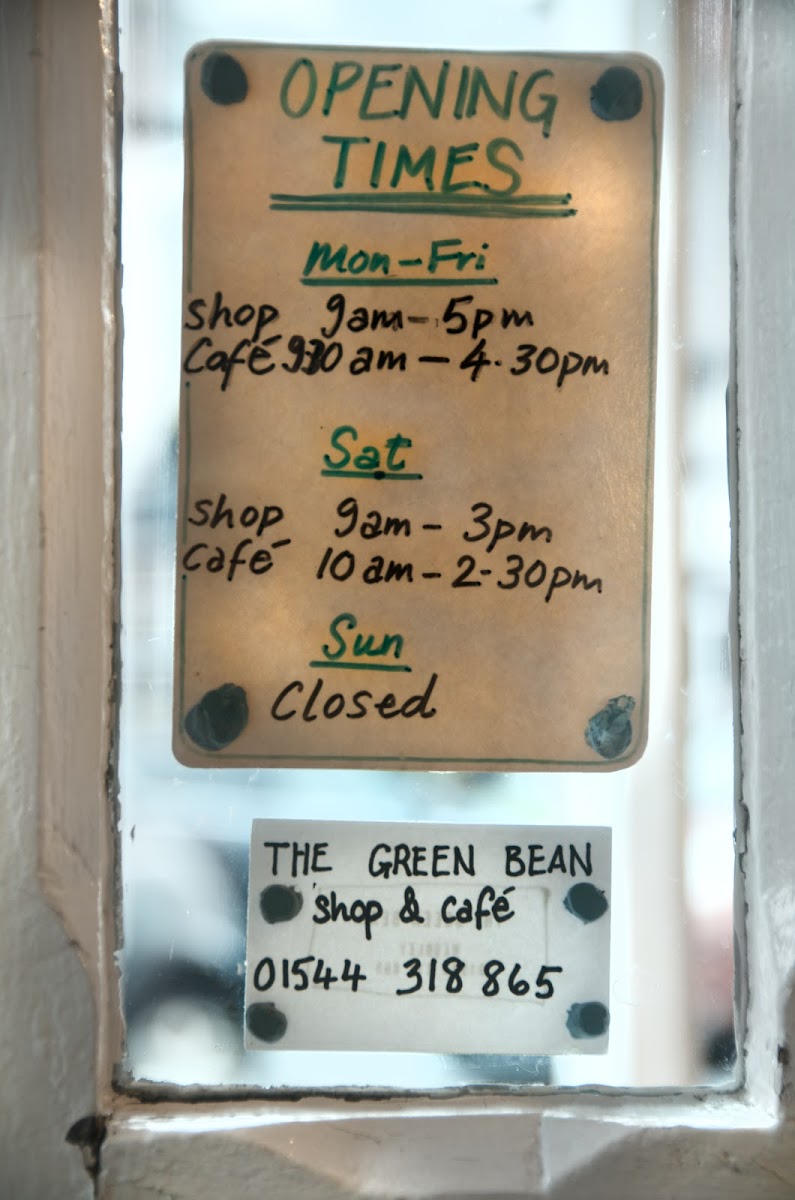 OPENING
TIMES
Mon-Fri
shop 9am - 5pm
Café 9.30 am - 4.30pm
Sat
shop 9am - 3pm
Café 10 am - 2.30pm
Sun
Closed
THE GREEN BEAN
shop & café
01544 318 865